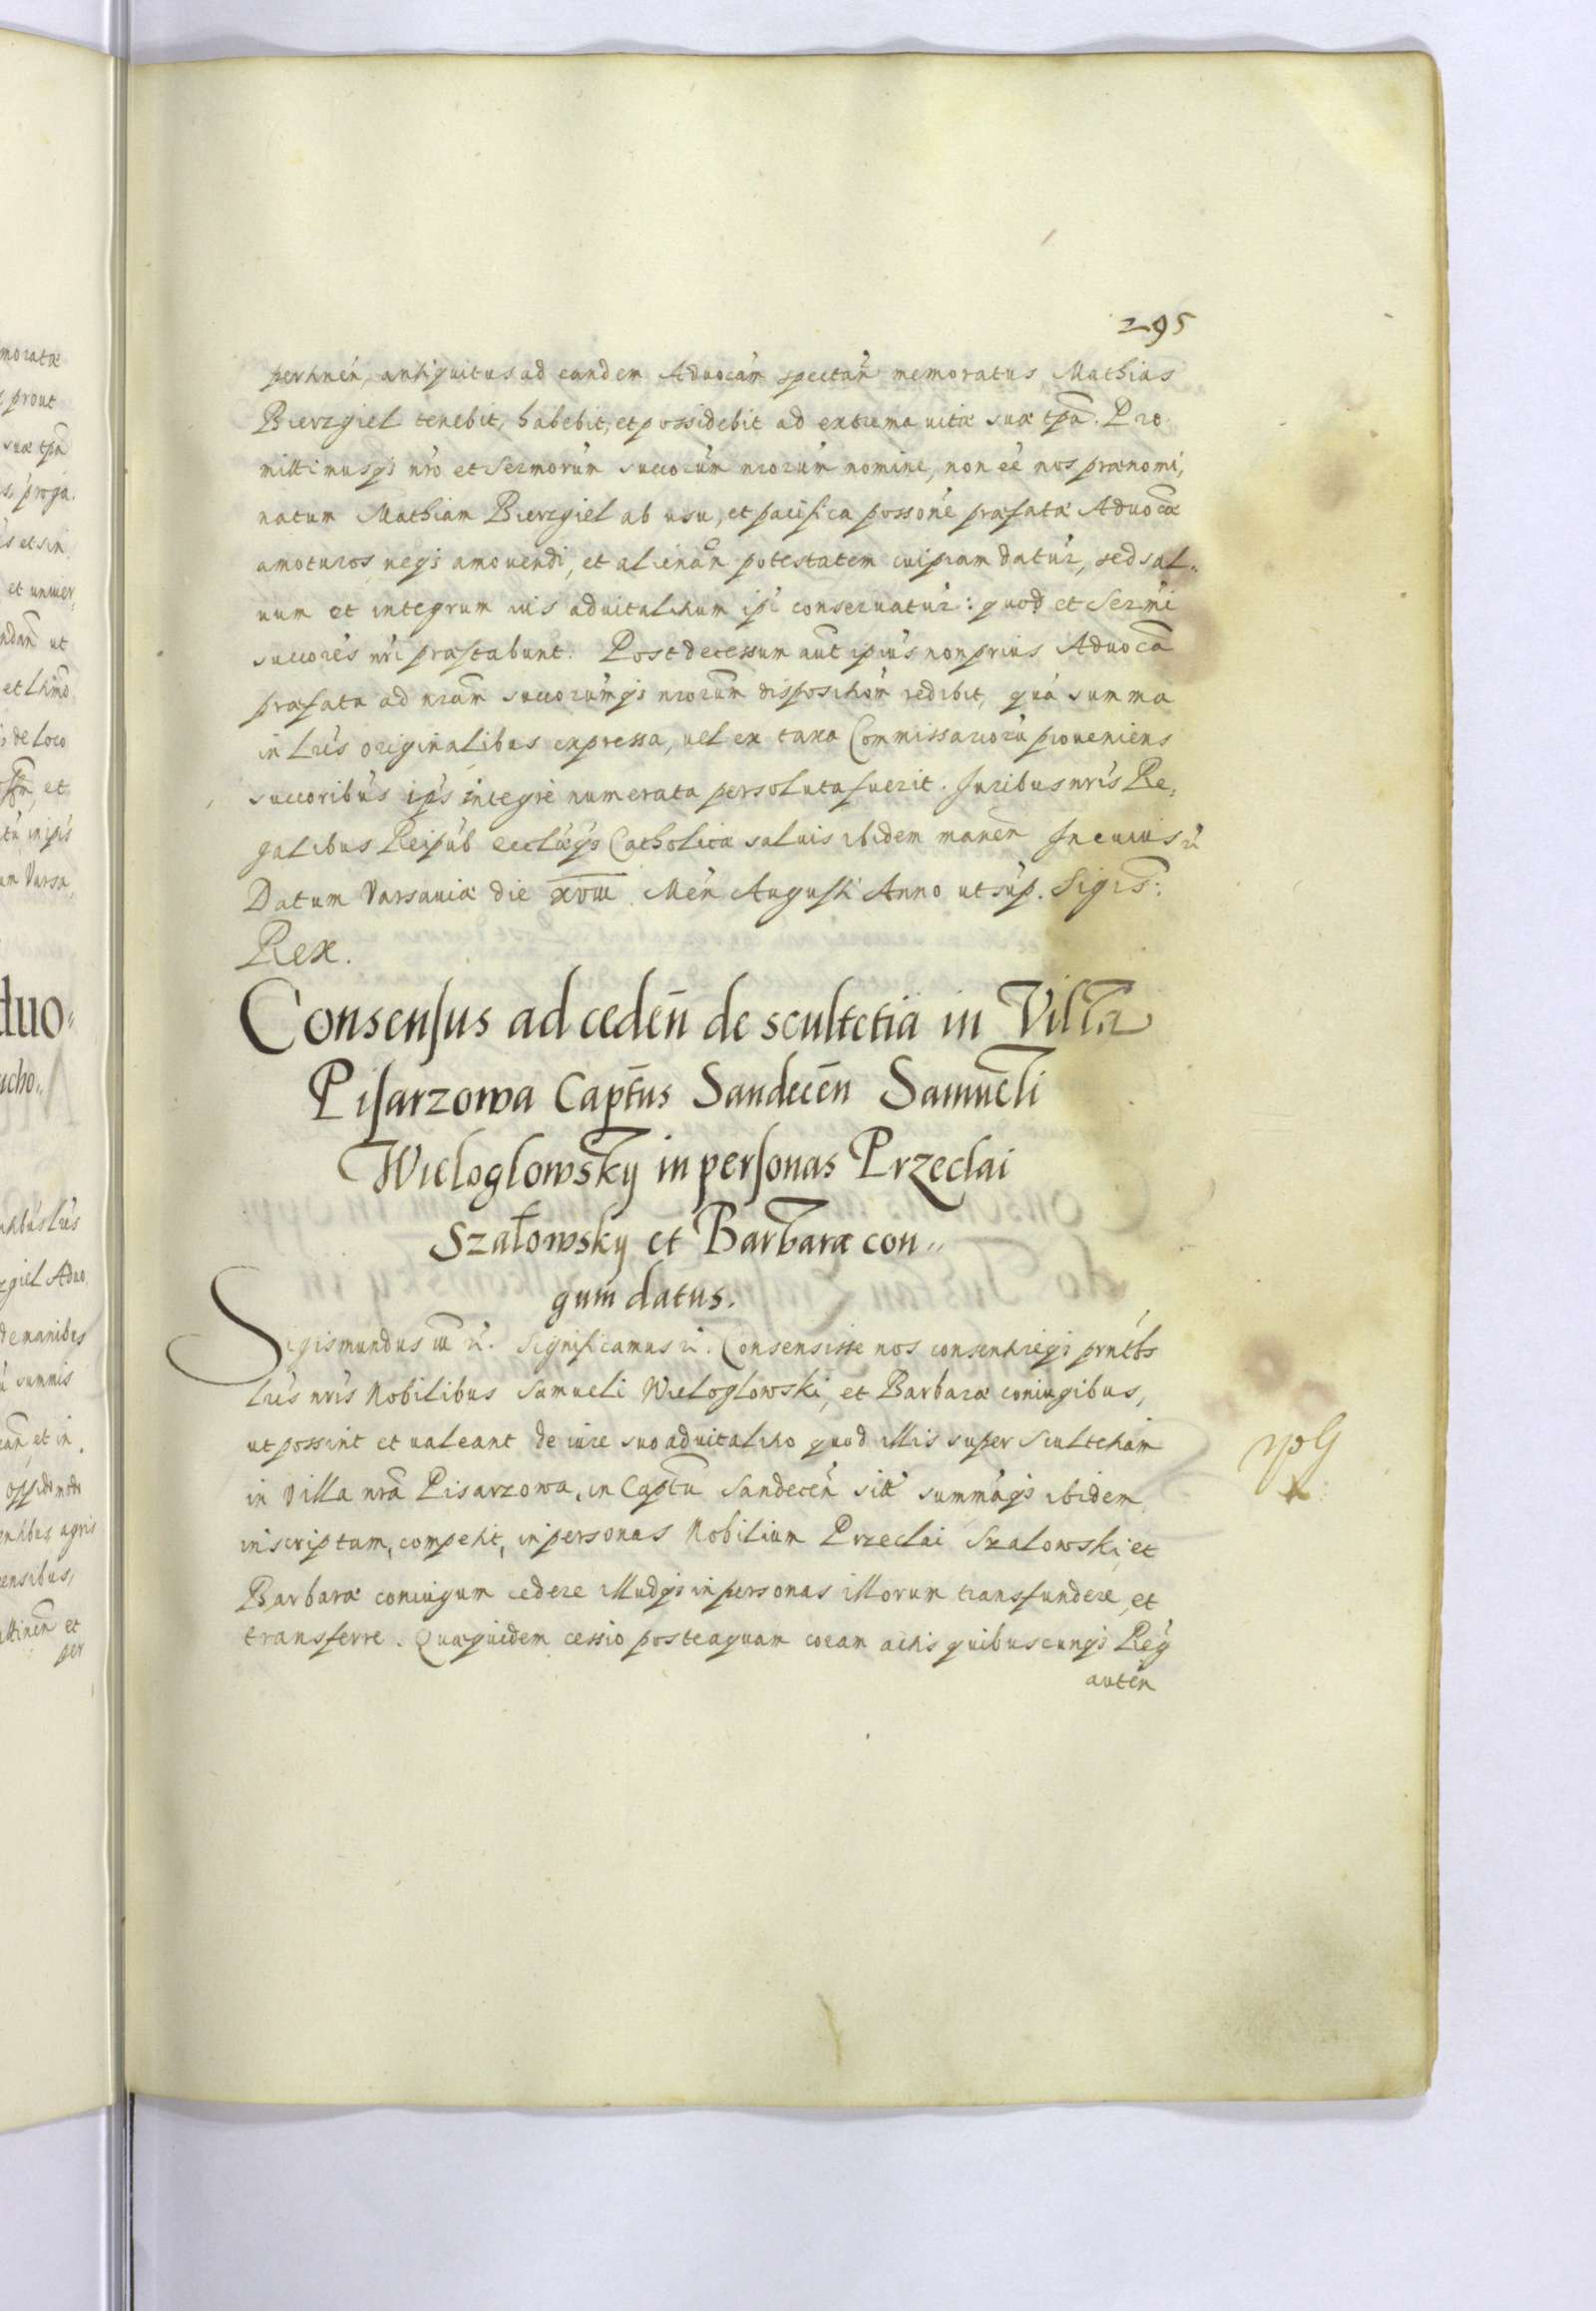 295
pertineñ, antiquitus ad eandem Aduocãm spectañ memoratus Mathias
Bierzgiel tenebit, habebit, et possidebit ad extrema vitæ suæ tpã. Pro
mittimusq́ nŕo et Sermorum succorum nrorum nomine, non eé nos prænomi,
natum Mathiam Bierzgiel ab usu, et pacifica possoñe præfatæ Aduocæ
amoturos neq́ amouendi, et alienañ potestatem cuipiam datur, sed sal„
uum et integrum ius aduitalitium ipi conseruatur: quod et Sermi
succores nri præstabunt. Post decessum aut ipius non prius Aduocã
præfata ad nram succorumq́ nrorum dispositioñ redibit, quá summa
in Lris originalibus expressa, uel ex taxa Commissarioru proueniens
succoribus ipis integré numerata persoluta fuerit. Juribus nris Re,
galibus Reipub ecclæq́ Catholicæ saluis ibidem maneñ In cuius rĩ
Datum Varsauiæ die xviii Meñ Augusti Anno ut sup. Sigis:
Rex.
Consensus ad cedeñ de scultetia in Villa
Pisarzowa Captus Sandeceñ Samueli
Wieloglowsky in personas Przeclai
Szalowsky et Barbaræ con„
gum datus.
Sigismundus iii rĩ. Significamus rĩ. Consensisse nos consentireq́ prntbs
Lris nris Nobilibus Samueli Wieloglowski, et Barbaræ coniugibus,
ut possint et ualeant de iure suo aduitalitio quod illis super Scultetiam
in Villa nrã Pisarzowa, in Captu Sandeceñ sitã summáq́ ibidem
inscriptam, competit, in personas Nobilium Przeclai Szalowski, et
Barbaræ coniugum cedere illudq́ in personas illorum transfundere, et
transferre. Quæquidem cessio posteaquam coram actis quibuscunq́ Reg
auteñ